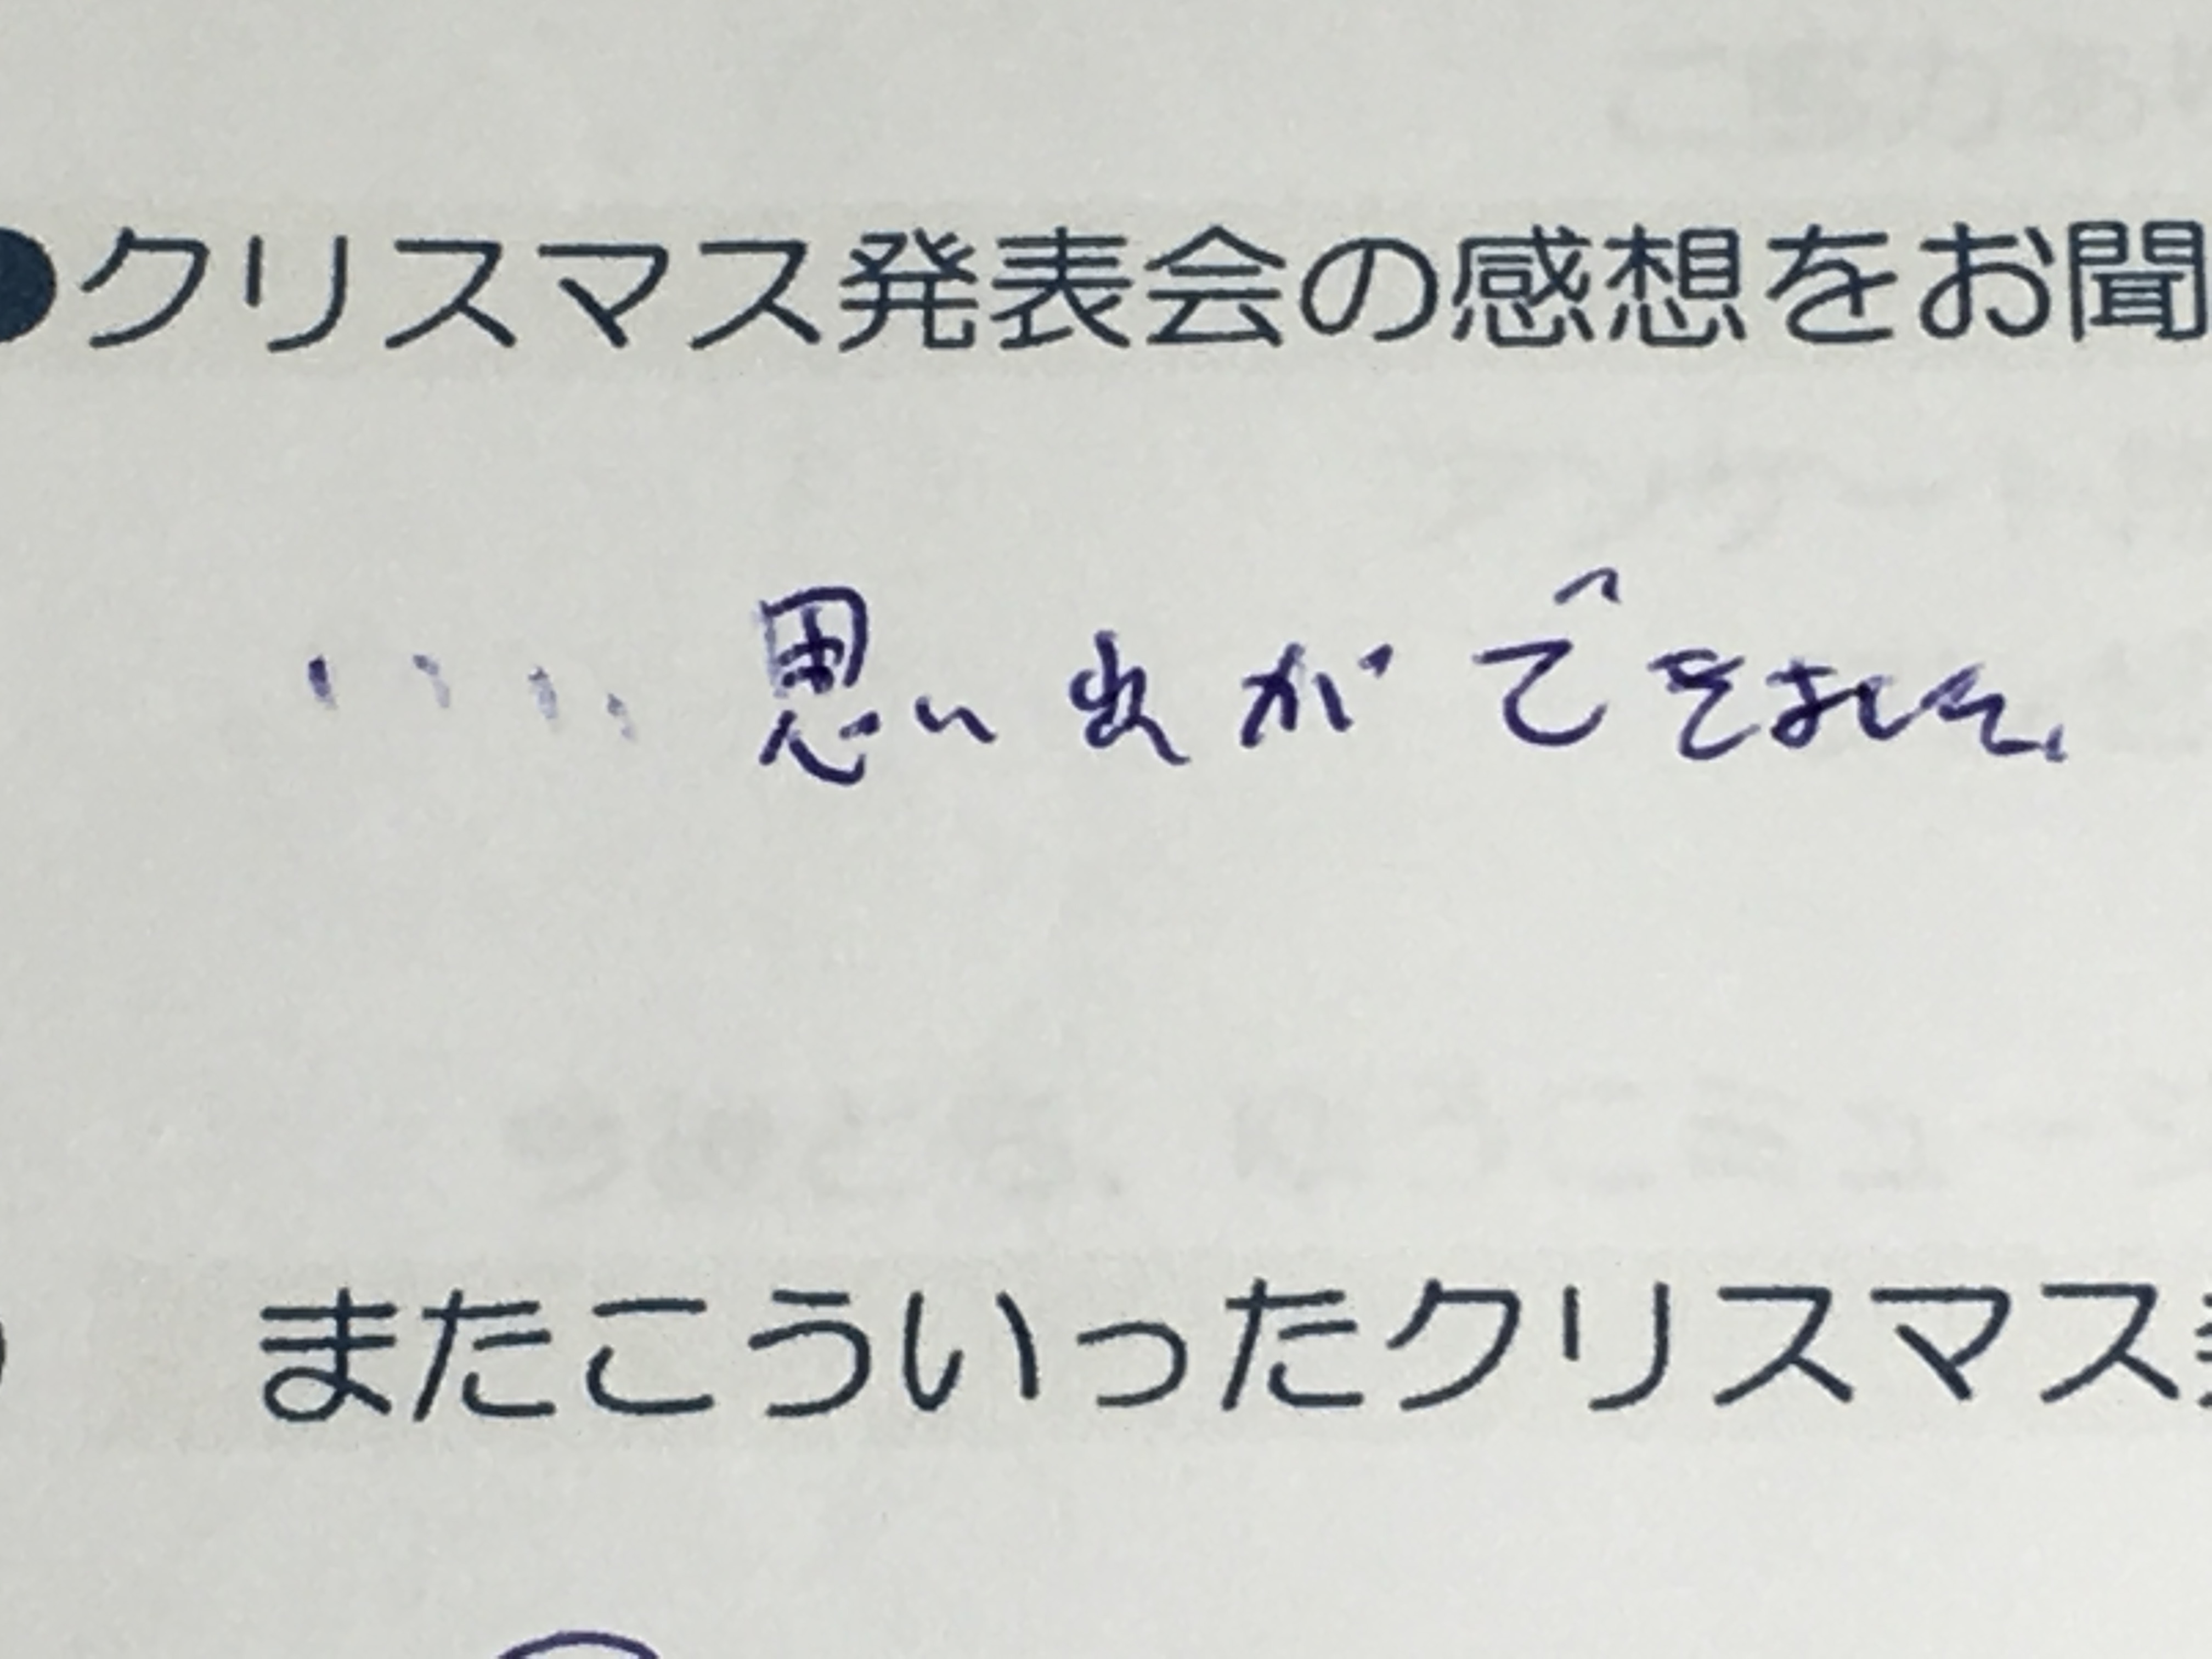 ●クリスマス発表会の感想をお聞
‥‥思い出ができました。
またこういったクリスマス